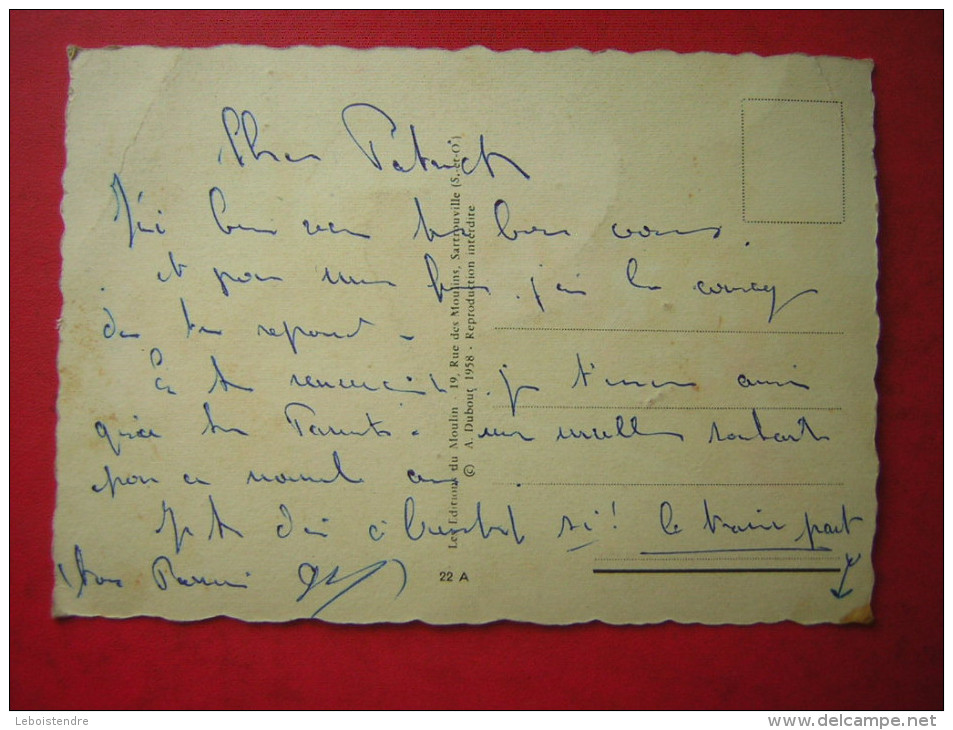 Cher Patrick
J'ai bien reçu tes bons vœux.
et pour une fois j'ai le courage
de te repondre -
En te remerciant je t'envoie ainsi
qu'à tes Parents - mes meilleurs souhaits
pour ce nouvel an.
Je te dis à bientôt si! le train part
Ton Parrain
Les Editions du Moulin - 19, Rue des Moulins, Sartrouville (S.-et-O.)
© A. Dubout 1958 - Reproduction interdite
22 A
Leboistendre
www.delcampe.net